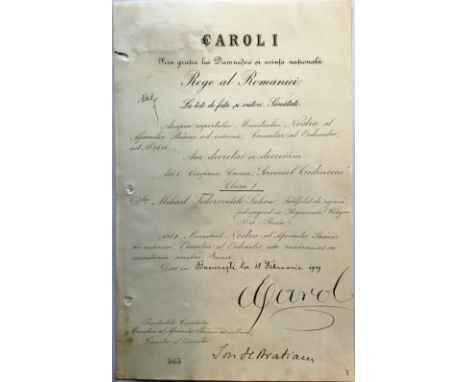 CAROL I
Prin grația lui Dumnedeu și voința națională
Rege al României
La toți de față și viitori, Sănătate
Asupra raportului Ministrului Nostru al
Afacerilor Străine ad interim, Cancelar al Ordinelor,
sub No
Am decretat și decretăm
Art. I. Conferim Crucea „Serviciul Credincios"
Clasa I
Mihail Teodorovich
Art. II. Ministrul Nostru al Afacerilor Străine
ad interim, Cancelar al Ordinelor, este însărcinat cu
executarea acestui
Dat în București la 18 Februarie 1909
Carol
Președintele Consiliului
Ministru al Afacerilor Străine ad interim
Cancelar al Ordinelor
Ion I. C. Bratianu
565